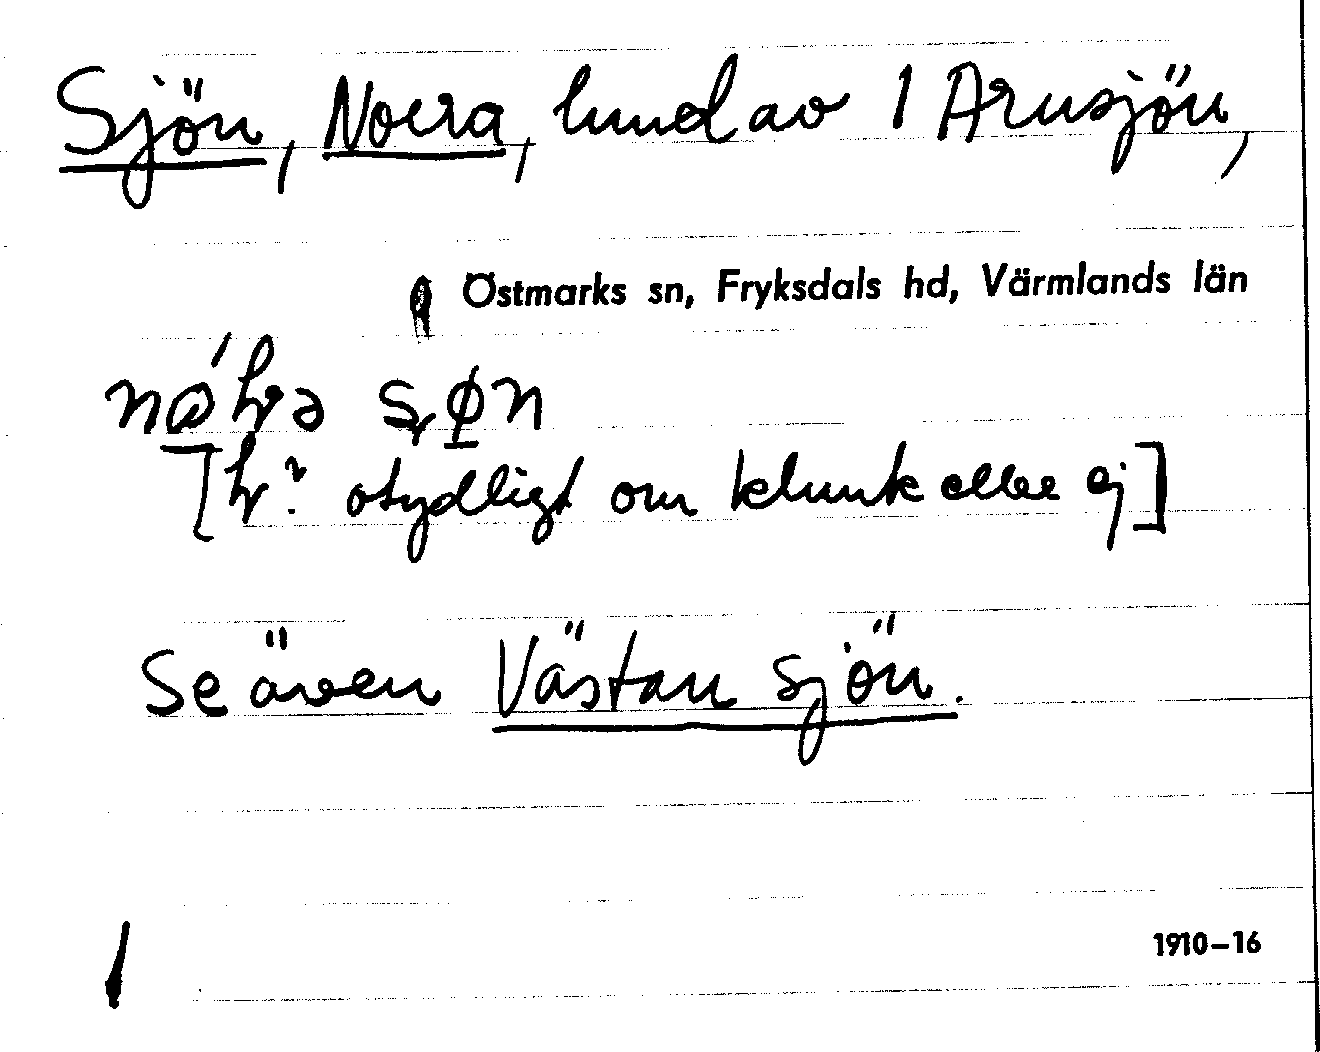 Sjön, Norra, hmd av 1 Arnsjön,
Östmarks sn, Fryksdals hd, Värmlands län
[ otydligt om klunk eller ej]
Se även Västan sjön.
1910–16